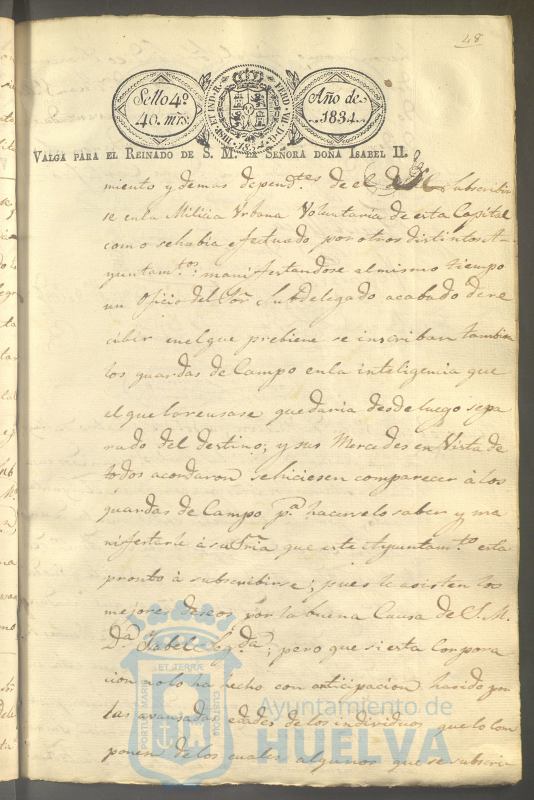 48
Sello 4º
40. mrs.
HISP. ET IND. R. FERD. VII. D. G. 1834
Año de
1834.
VALGA PARA EL REINADO DE S. M. LA SEÑORA DOÑA ISABEL II.
miento y demas depend.tes de el subscribir
se en la Milicia Urbana Voluntaria de esta Capital
como se habia efectuado por otros distintos A-
yuntam.tos: manifestandose al mismo tiempo
un Oficio del Sor. Subdelegado acabado de re
cibir en el que prebiene se inscriban tambien
los guardas de Campo en la inteligencia que
el que lo reusase quedaria desde luego sepa
rado del destino; y sus Mercedes en Vista de
todos acordaron se hiciesen comparecer á los
guardas de Campo p.a hacerselo saber y ma
nifestarle á su Sria que este Ayuntam.to esta
pronto á subscribirse; pues le asisten los
mejores deseos por la buena Causa de S. M.
D.a Ysabel Seg.da; pero que si esta Corpora
cion no lo ha hecho con anticipacion ha sido por
las avansadas edades de los individuos que lo com
ponen de los cuales algunos que se subscri
PORTUS MARIS ET TERRÆ CUSTODIA
Ayuntamiento de
HUELVA